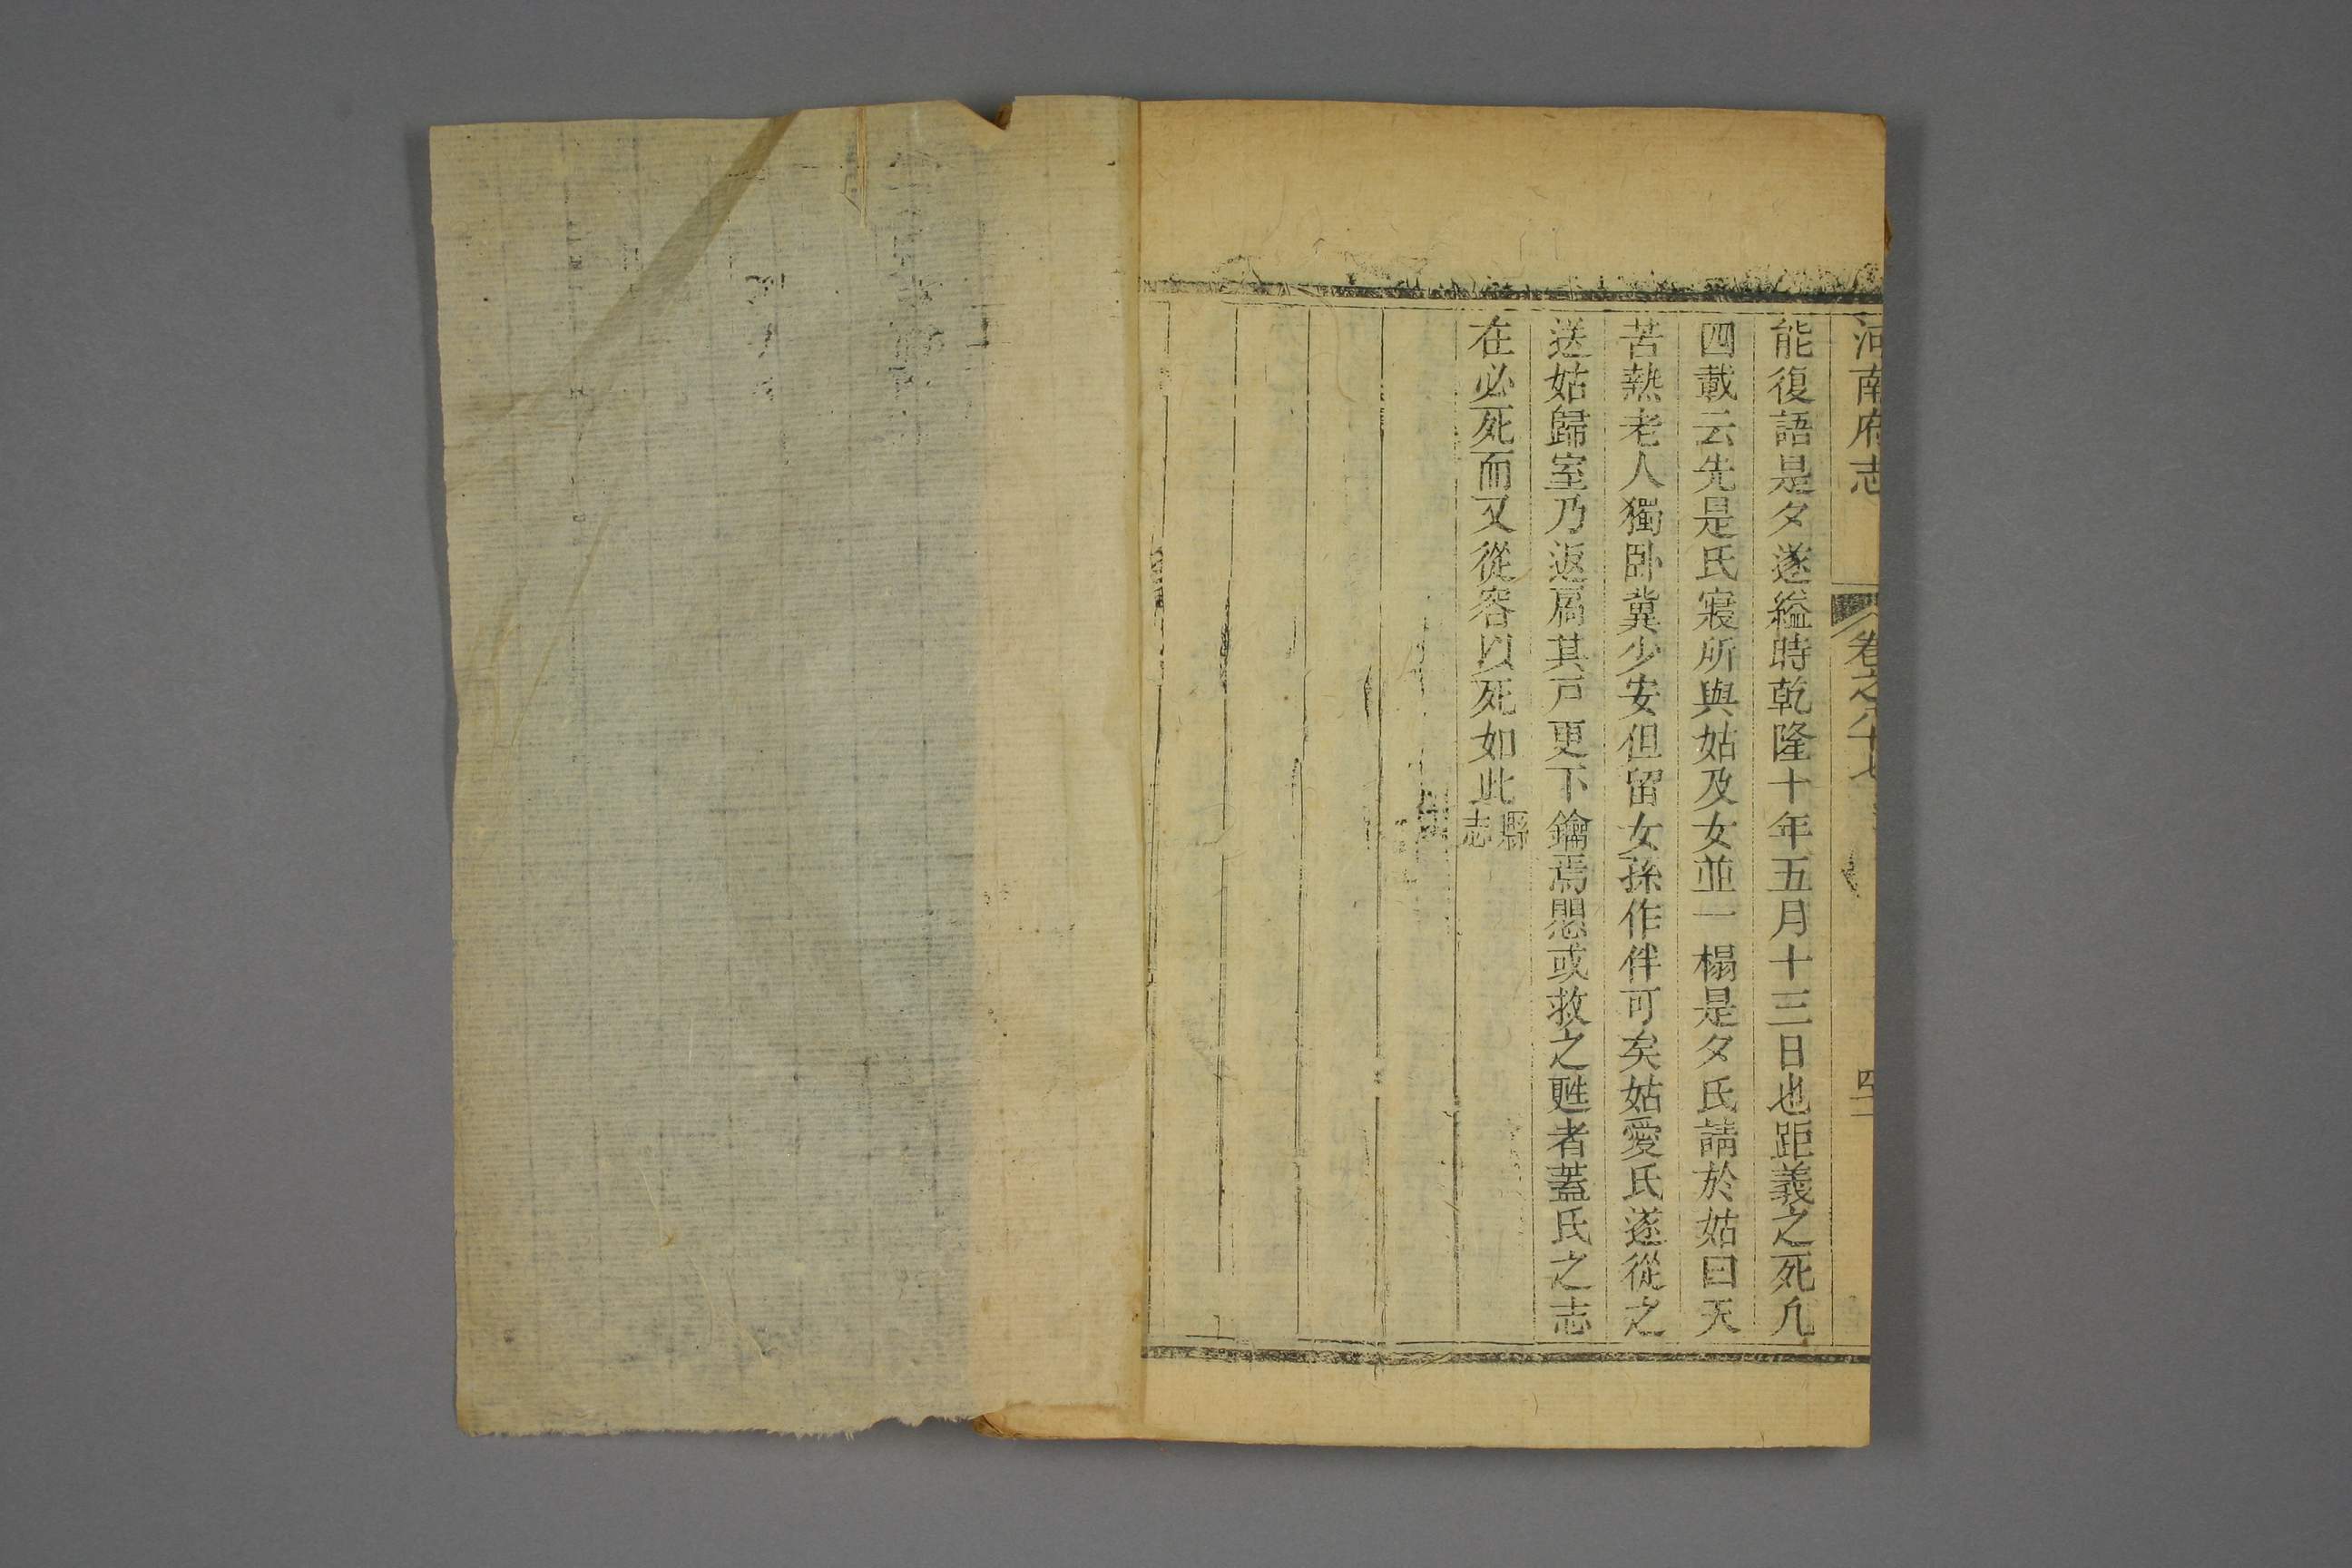 河南府志 卷之八十七 四一
能復語是夕遂縊時乾隆十年五月十三日也距義之死凡
四載云先是氏寢所與姑及女並一榻是夕氏請於姑曰天
苦熱老人獨卧冀少安但留女孫作伴可矣姑愛氏遂從之
送姑歸室乃返扃其戸更下鑰焉愳或救之甦者蓋氏之志
在必死而又從容以死如此縣志